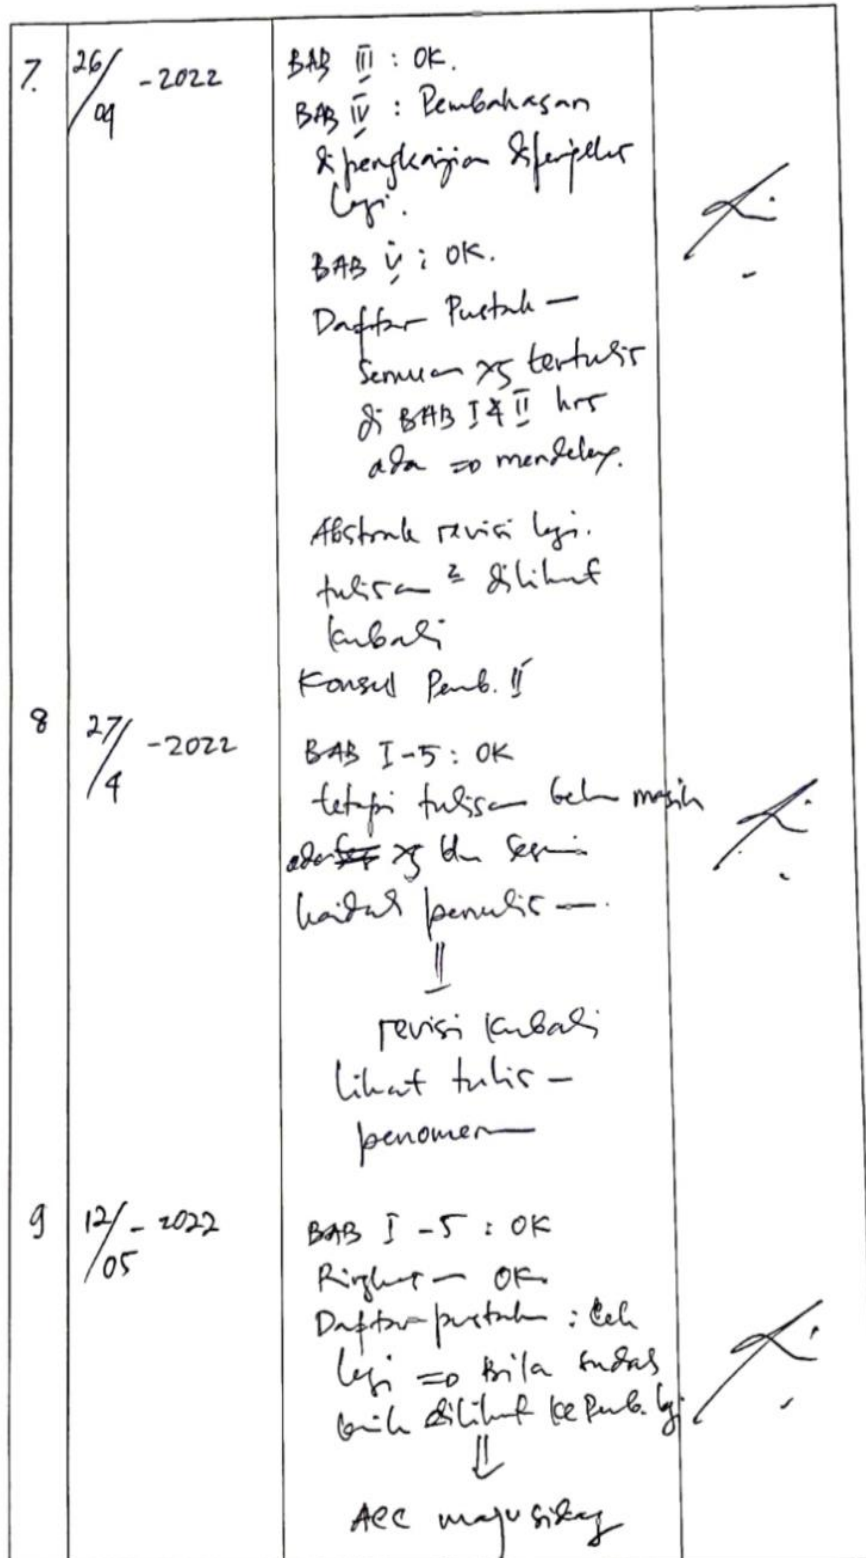 7. 26/04 -2022
BAB III : OK.
BAB IV : Pembahasan
di pengkajian diperjelas
lagi.
BAB V : OK.
Daftar Pustaka
Semua yg tertulis
di BAB I & II hrs
ada => mendeley.
Abstrak revisi lagi.
tulisan2 dilihat
kembali
Konsul Pemb. II
8 27/4 -2022
BAB I-5 : OK
tetapi tulisan masih
ada yg blm sesuai
kaidah penulisan.
revisi kembali
lihat tulisan
penomeran
9 12/05 - 2022
BAB I - 5 : OK
Ringkasan OK.
Daftar pustaka : Cek
lagi => Bila sudah
baik dilihat ke Pemb. lagi
ACC maju sidang